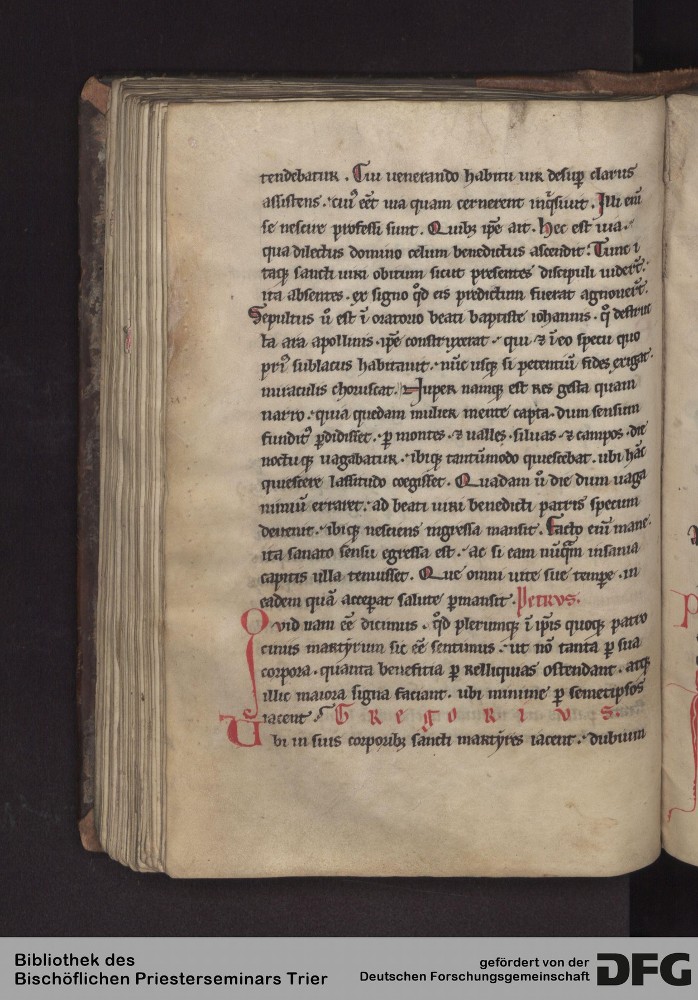 tendebatur. Cui uenerando habitu uir desup̄ clarus
assistens. cuiꝰ eēt uia quam cernerent inq̇siuit. Illi eni̅
se nescire professi sunt. Quibꝫ ip̄e ait. Hec est uia.
qua dilectus domino celum benedictus ascendit. Tunc i
taqꝫ sancti uiri obitum sicut presentes discipuli uider̄t.
ita absentes. ex signo qd̄ eis predictum fuerat agnouer̄t.
Sepultus u̅ est i̅ oratorio beati baptiste iohannis. q̄ destruc
ta ara apollinis. ip̄e construxerat. qui ⁊ i̅ eo specu quo
priꝰ sublacus habitauit. nu̅c usqꝫ si petentiu̅ fides exigat.
miraculis choruscat. Nuper namqꝫ est res gesta quam
narro. quia quedam mulier mente capta. dum sensum
funditꝰ ꝑdidisset. ꝑ montes. ⁊ ualles. siluas. ⁊ campos. die
noctuqꝫ uagabatur. ibiqꝫ tantu̅modo quiescebat. ubi ha̅c
quiescere lassitudo coegisset. Quadam u̅ die dum uaga
nimiu̅ erraret. ad beati uiri benedicti patris specum
deuenit. ibiqꝫ nesciens ingressa mansit. Facto eni̅ mane.
ita sanato sensu egressa est. ac si eam nu̅qua̅ insania
capitis ulla tenuisset. Que omni uite sue tempe. in
eadem qua̅ acceꝑat salute ꝑmansit. Petrvs.
Qvid nam eē dicimus. qd̄ plerumqꝫ i̅ ip̄is quoqꝫ patro
ciniis martỳrum sic eē sentimus. ut no̅ tanta ꝑ sua
corpora. quanta benefitia ꝑ relliquias ostendant. atqꝫ
illic maiora signa faciant. ubi minime ꝑ semetipsos
iacent. Gregorivs.
Vbi in suis corporibꝫ sancti martỳres iacent. dubium
Bibliothek des
Bischöflichen Priesterseminars Trier
gefördert von der
Deutschen Forschungsgemeinschaft
DFG